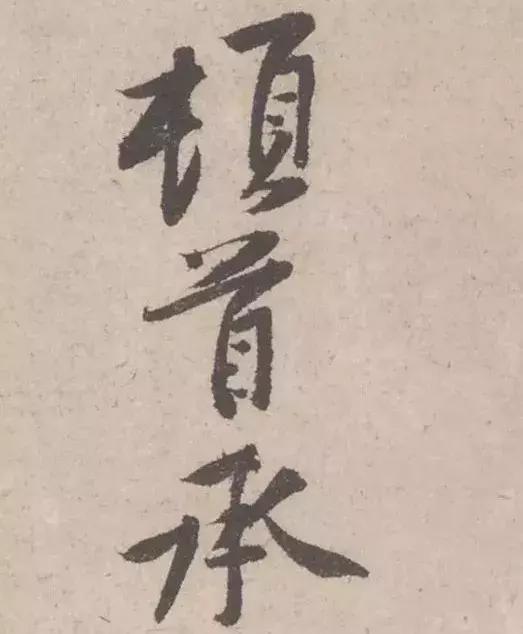 頓首承